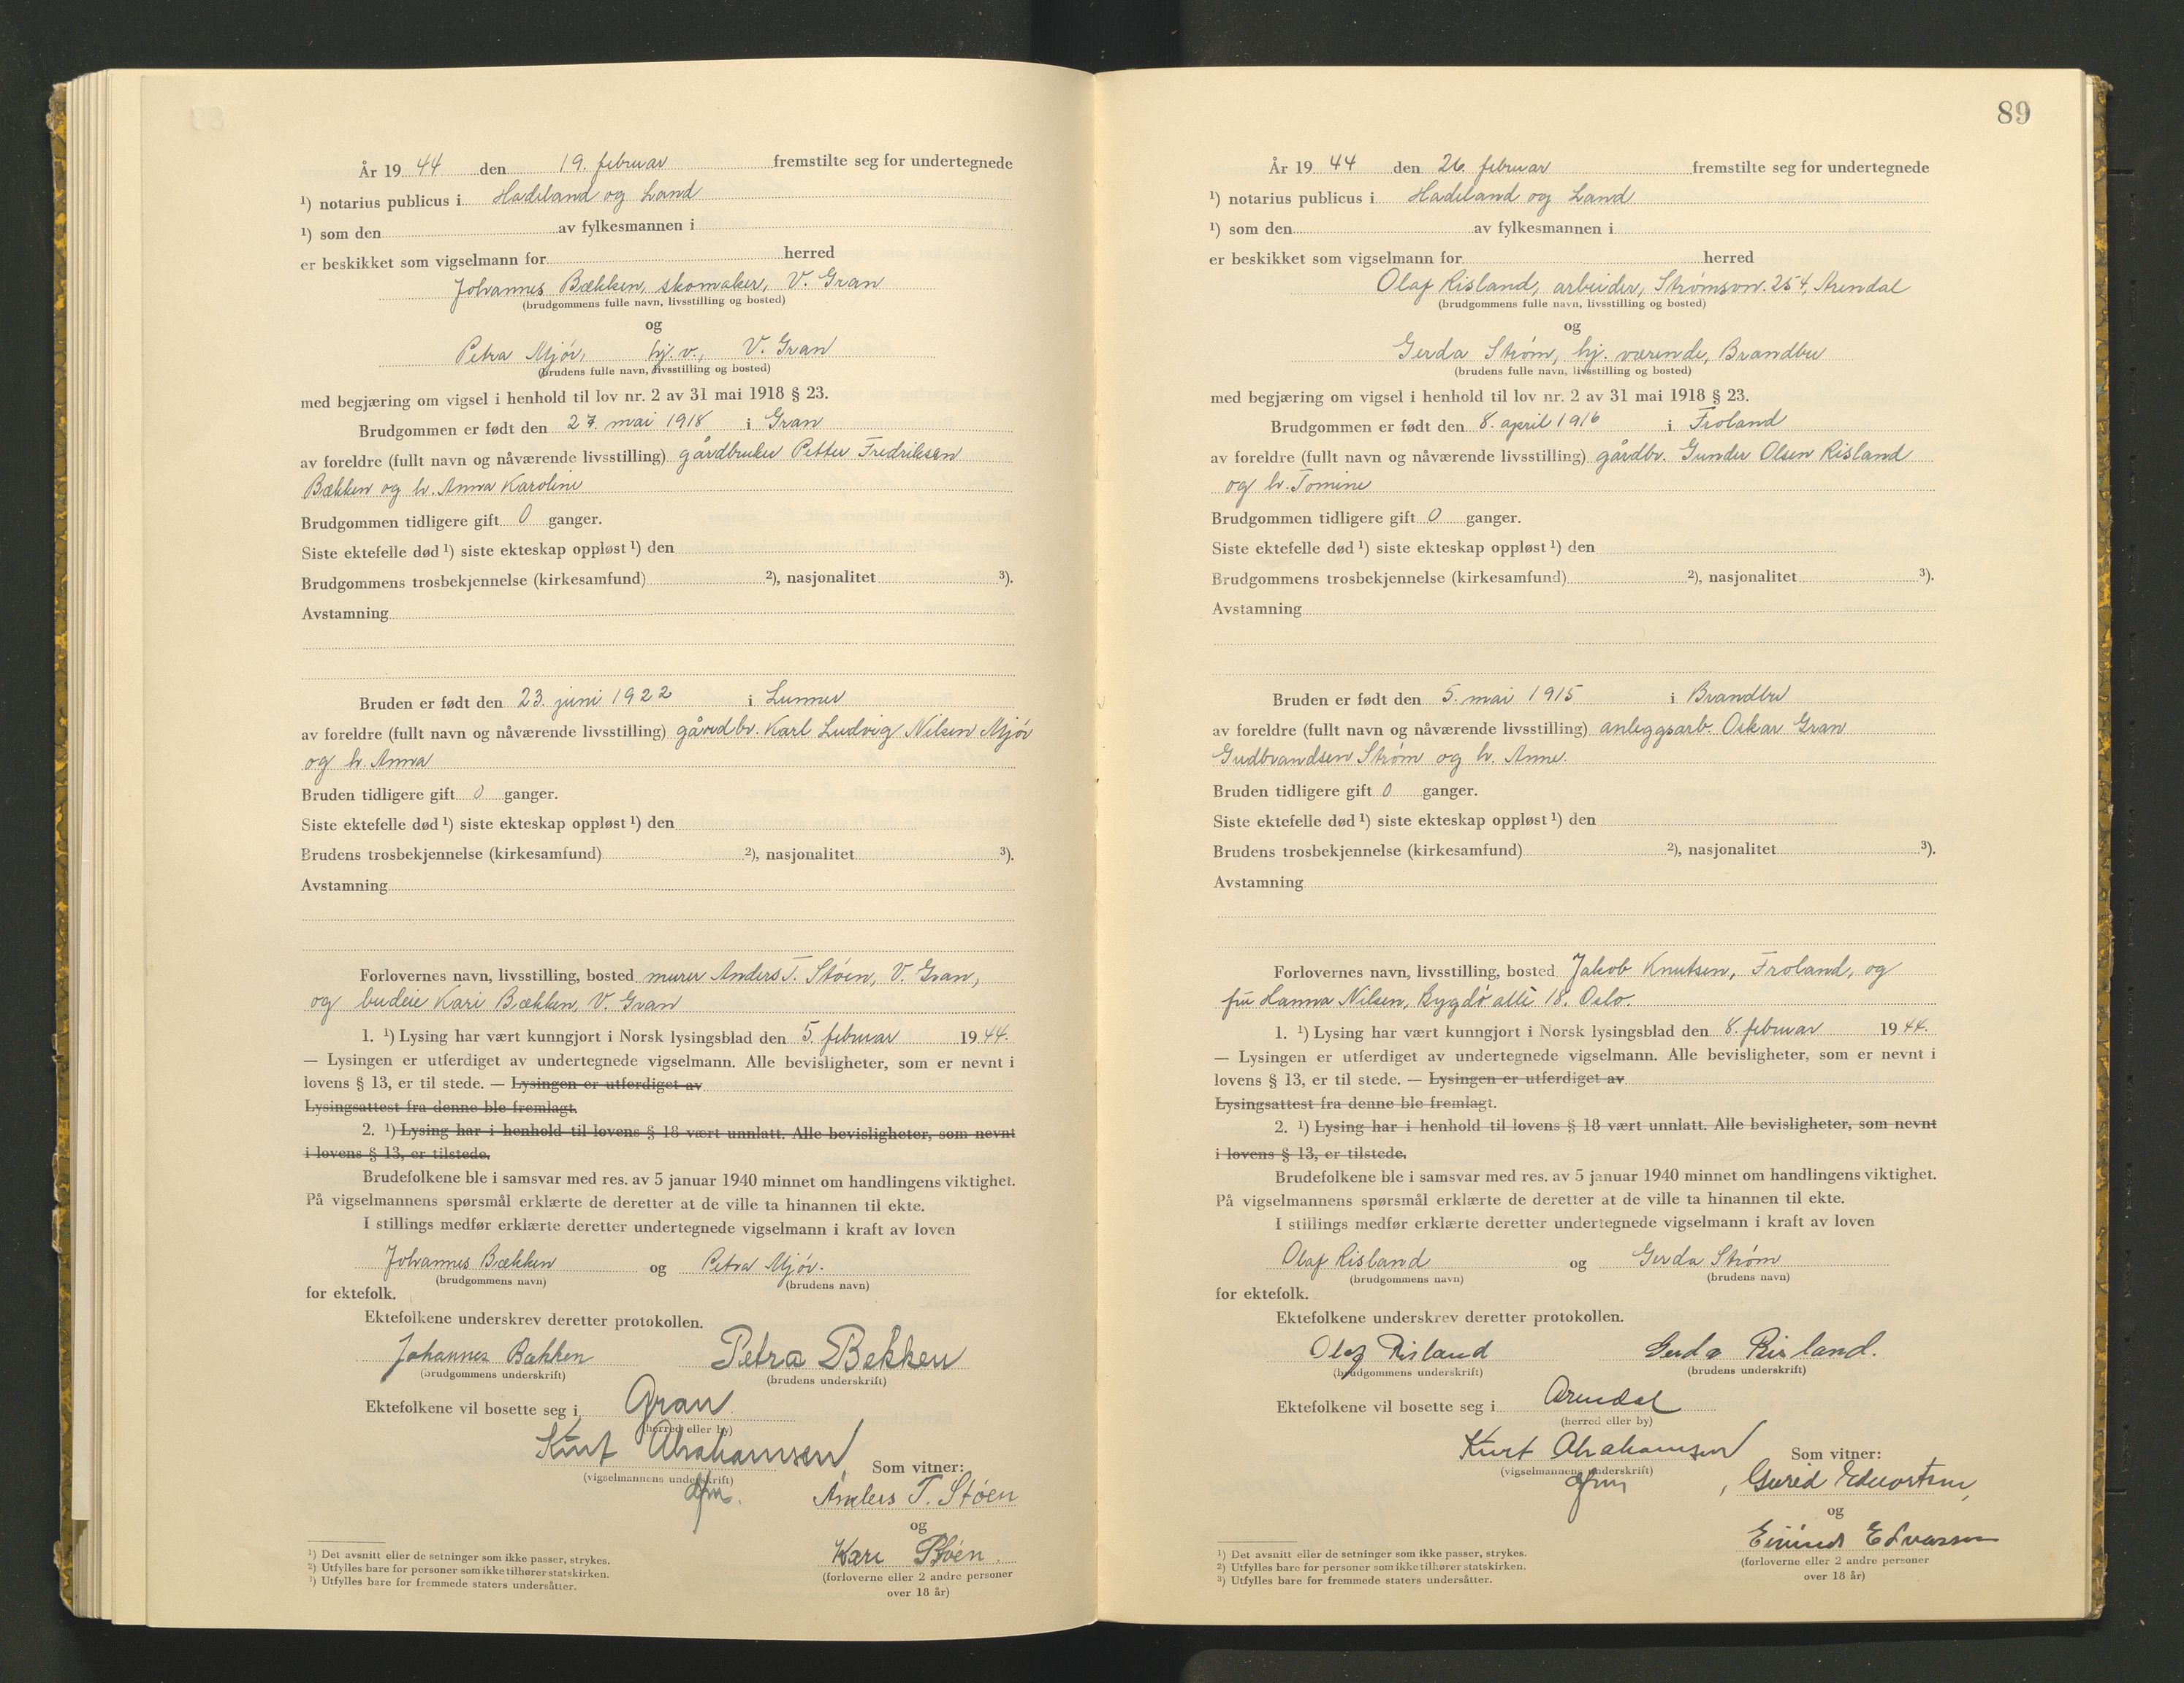 År 19 44 den 19. februar fremstilte seg for undertegnede
¹) notarius publicus i Hadeland og Land
¹) som den av fylkesmannen i
er beskikket som vigselmann for herred
Johannes Bækken, skomaker, V. Gran
(brudgommens fulle navn, livsstilling og bosted)
og
Petra Mjør, hj. v., V. Gran
(brudens fulle navn, livsstilling og bosted)
med begjæring om vigsel i henhold til lov nr. 2 av 31 mai 1918 § 23.
Brudgommen er født den 27. mai 1918 i Gran
av foreldre (fullt navn og nåværende livsstilling) gårdbruker Petter Fredriksen
Bækken og h. Anna Karoline
Brudgommen tidligere gift 0 ganger.
Siste ektefelle død ¹) siste ekteskap oppløst ¹) den
Brudgommens trosbekjennelse (kirkesamfund) ²), nasjonalitet ³).
Avstamning
Bruden er født den 23. juni 1922 i Lunner
av foreldre (fullt navn og nåværende livsstilling) gårdbr. Karl Ludvig Nilsen Mjør
og h. Anna
Bruden tidligere gift 0 ganger.
Siste ektefelle død ¹) siste ekteskap oppløst ¹) den
Brudens trosbekjennelse (kirkesamfund) ²), nasjonalitet ³).
Avstamning
Forlovernes navn, livsstilling, bosted murer Anders T. Støen, V. Gran,
og budeie Kari Bækken, V. Gran
1. ¹) Lysing har vært kunngjort i Norsk lysingsblad den 5. februar 19 44.
— Lysingen er utferdiget av undertegnede vigselmann. Alle bevisligheter, som er nevnt i
lovens § 13, er til stede. — Lysingen er utferdiget av
Lysingsattest fra denne ble fremlagt.
2. ¹) Lysing har i henhold til lovens § 18 vært unnlatt. Alle bevisligheter, som nevnt
i lovens § 13, er tilstede.
Brudefolkene ble i samsvar med res. av 5 januar 1940 minnet om handlingens viktighet.
På vigselmannens spørsmål erklærte de deretter at de ville ta hinannen til ekte.
I stillings medfør erklærte deretter undertegnede vigselmann i kraft av loven
Johannes Bækken og Petra Mjør.
(brudgommens navn) (brudens navn)
for ektefolk.
Ektefolkene underskrev deretter protokollen.
Johannes Bækken Petra Bekken
(brudgommens underskrift) (brudens underskrift)
Ektefolkene vil bosette seg i Gran
(herred eller by)
Kurt Abrahamsen
(vigselmannens underskrift) Som vitner:
Anders T. Støen
og
Kari Støen
(forloverne eller 2 andre personer
over 18 år)
¹) Det avsnitt eller de setninger som ikke passer, strykes.
²) Utfylles bare for personer som ikke tilhører statskirken.
³) Utfylles bare for fremmede staters undersåtter.
89
År 19 44 den 26. februar fremstilte seg for undertegnede
¹) notarius publicus i Hadeland og Land
¹) som den av fylkesmannen i
er beskikket som vigselmann for herred
Olaf Risland, arbeider, Strømsvn. 254, Arendal
(brudgommens fulle navn, livsstilling og bosted)
og
Gerda Strøm, hj. værende, Brandbu
(brudens fulle navn, livsstilling og bosted)
med begjæring om vigsel i henhold til lov nr. 2 av 31 mai 1918 § 23.
Brudgommen er født den 8. april 1916 i Froland
av foreldre (fullt navn og nåværende livsstilling) gårdbr. Gunder Olsen Risland
og h. Tomine
Brudgommen tidligere gift 0 ganger.
Siste ektefelle død ¹) siste ekteskap oppløst ¹) den
Brudgommens trosbekjennelse (kirkesamfund) ²), nasjonalitet ³).
Avstamning
Bruden er født den 5. mai 1915 i Brandbu
av foreldre (fullt navn og nåværende livsstilling) anleggsarb. Oskar Gran
Gudbrandsen Strøm og h. Anne.
Bruden tidligere gift 0 ganger.
Siste ektefelle død ¹) siste ekteskap oppløst ¹) den
Brudens trosbekjennelse (kirkesamfund) ²), nasjonalitet ³).
Avstamning
Forlovernes navn, livsstilling, bosted Jakob Knutsen, Froland, og
fru Hanna Nilsen, Bygdø alle 18. Oslo.
1. ¹) Lysing har vært kunngjort i Norsk lysingsblad den 8. februar 19 44.
— Lysingen er utferdiget av undertegnede vigselmann. Alle bevisligheter, som er nevnt i
lovens § 13, er til stede. — Lysingen er utferdiget av
Lysingsattest fra denne ble fremlagt.
2. ¹) Lysing har i henhold til lovens § 18 vært unnlatt. Alle bevisligheter, som nevnt
i lovens § 13, er tilstede.
Brudefolkene ble i samsvar med res. av 5 januar 1940 minnet om handlingens viktighet.
På vigselmannens spørsmål erklærte de deretter at de ville ta hinannen til ekte.
I stillings medfør erklærte deretter undertegnede vigselmann i kraft av loven
Olaf Risland og Gerda Strøm
(brudgommens navn) (brudens navn)
for ektefolk.
Ektefolkene underskrev deretter protokollen.
Olaf Risland Gerda Risland.
(brudgommens underskrift) (brudens underskrift)
Ektefolkene vil bosette seg i Arendal
(herred eller by)
Kurt Abrahamsen
(vigselmannens underskrift) Som vitner:
og
(forloverne eller 2 andre personer
over 18 år)
¹) Det avsnitt eller de setninger som ikke passer, strykes.
²) Utfylles bare for personer som ikke tilhører statskirken.
³) Utfylles bare for fremmede staters undersåtter.